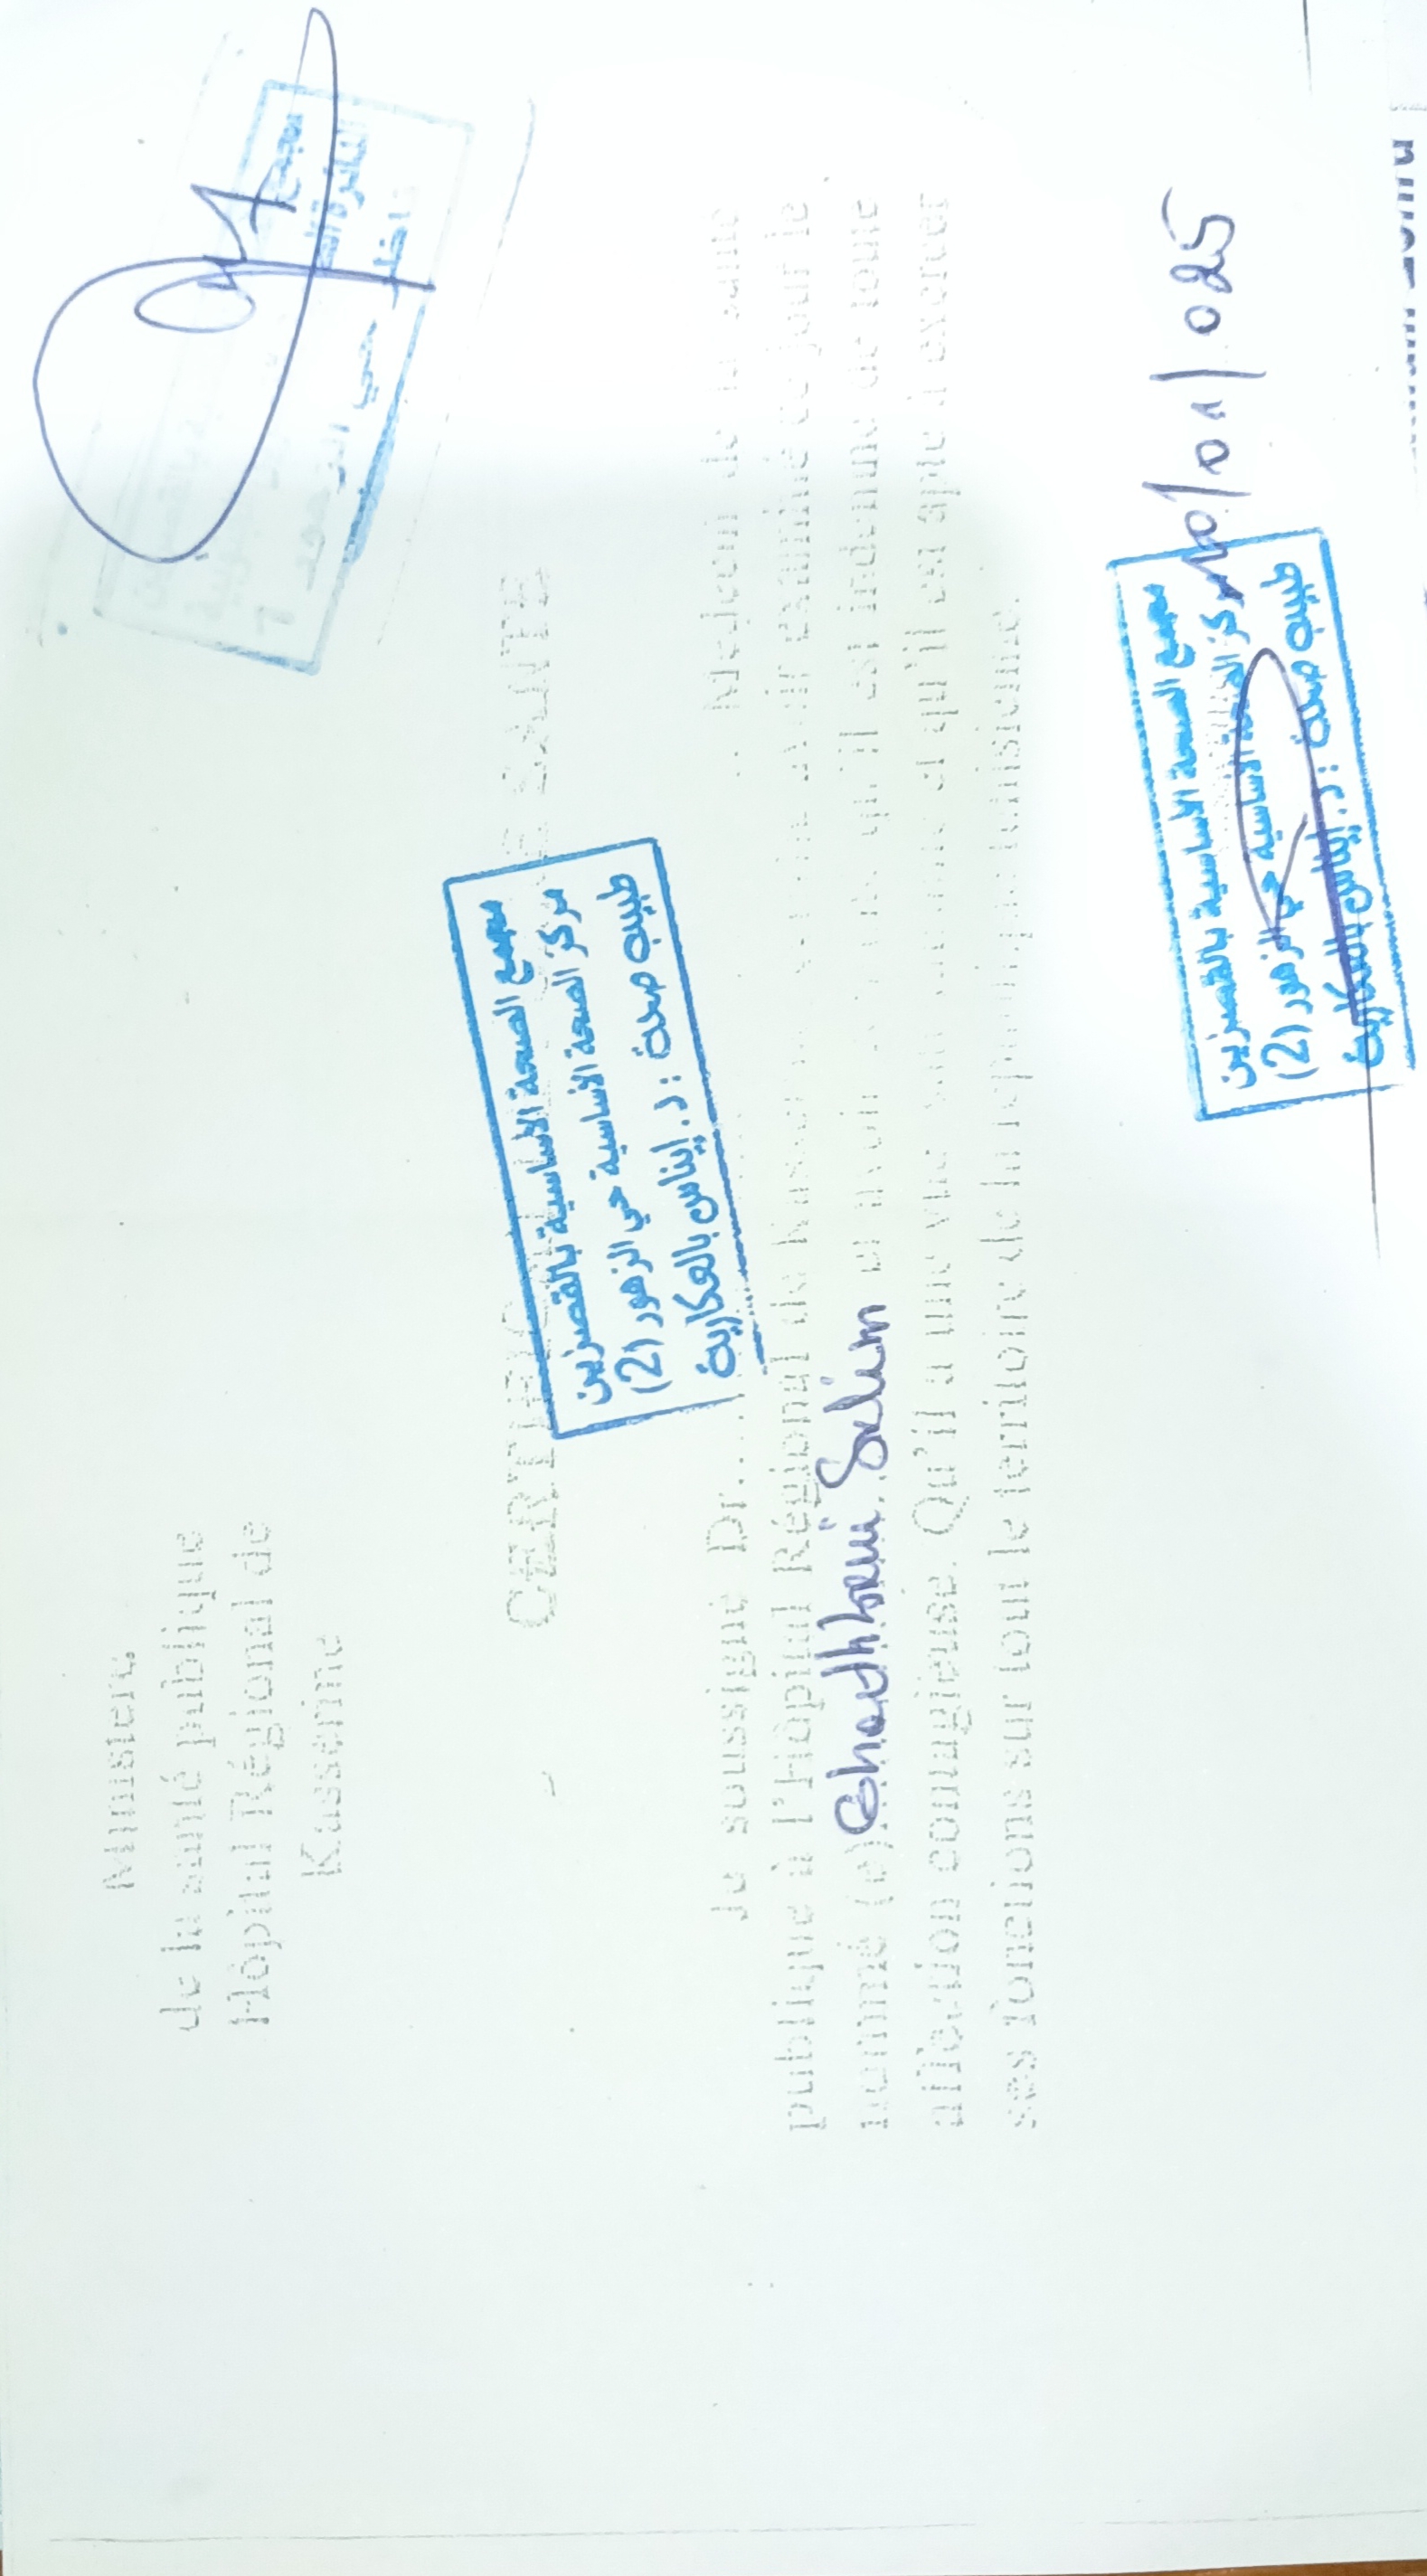 Ministère
de la santé publique
Hôpital Régional de
Kasserine
حي الزهور
CERTIFIC SANTE
مجمع الصحة الأساسية بالقصرين
مركز الصحة الأساسية حي الزهور (2)
طبيب صحة : د. إيناس بالعكارية
Je soussigné Dr.... Médecin de la santé
publique à l'Hôpital Régional de Kasserine avoir examiné ce jour le
nommé (e) Ghadhbani Salim et avoir qu'il est indemne de toute
affection contagieuse. Qu'il a une vue et qu'il est apte à exercer
ses fonctions sur tout le territoire de la république tunisienne.
10/01/025
مجمع الصحة الأساسية بالقصرين
مركز الصحة الأساسية حي الزهور (2)
طبيب صحة : د. إيناس بالعكارية